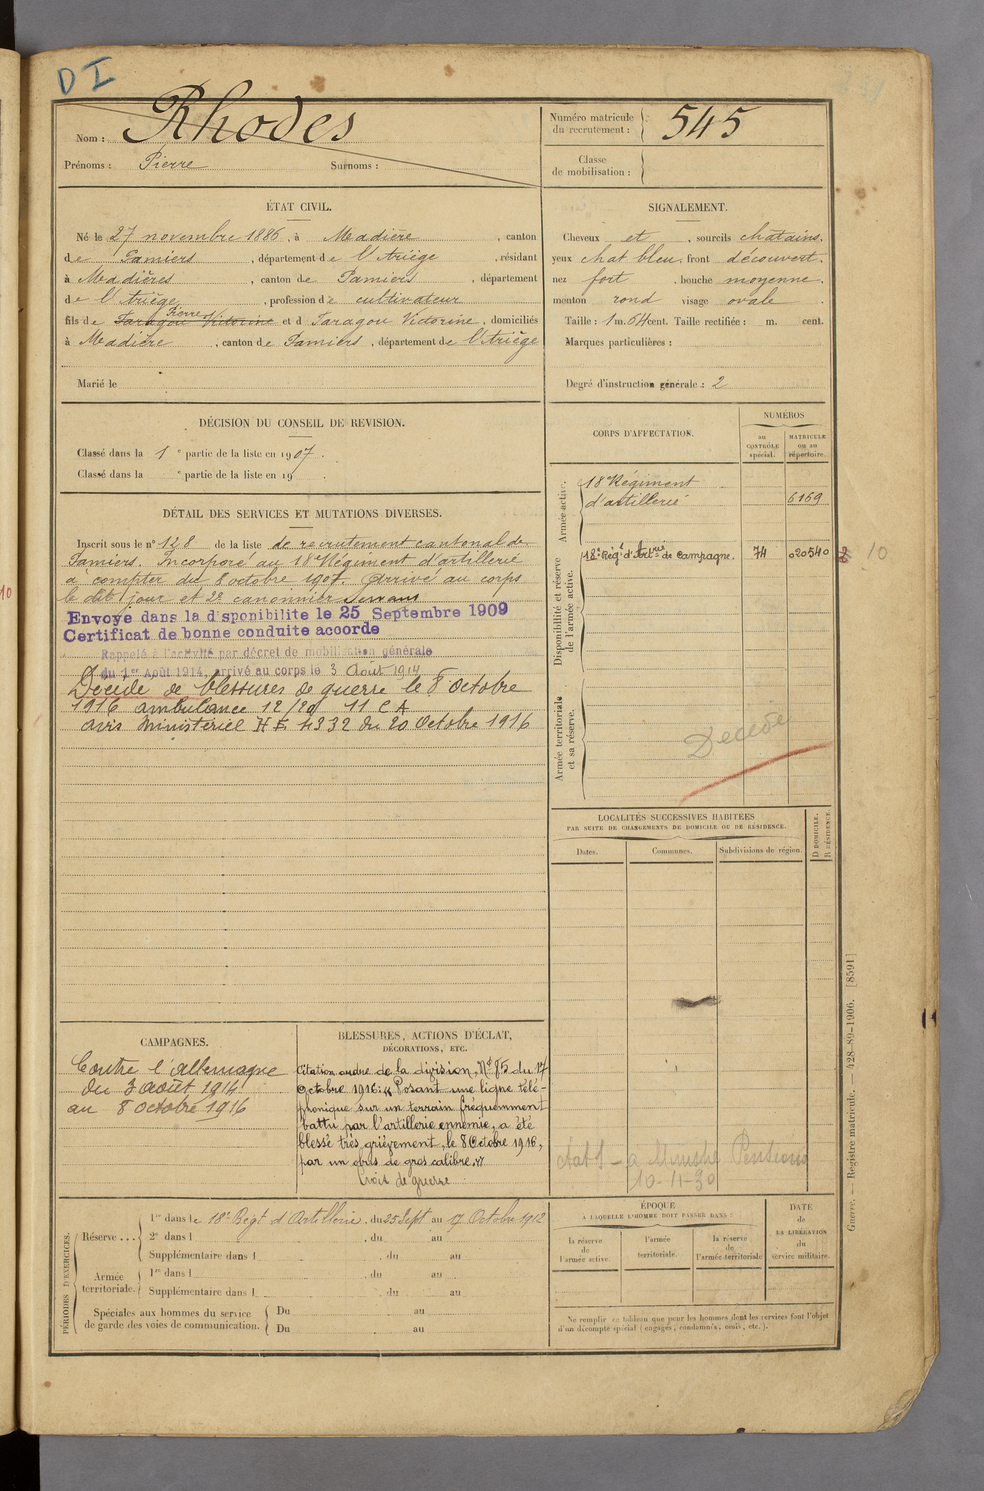 D I
Nom : Rhodes
Prénoms : Pierre Surnoms :
Numéro matricule
du recrutement : 545
Classe
de mobilisation :
ÉTAT CIVIL.
Né le 27 novembre 1886, à Madière, canton
de Pamiers, département de l'Ariège, résidant
à Madières, canton de Pamiers, département
de l'Ariège, profession de cultivateur
Pierre
fils de Taragou Victorine et d Taragou Victorine, domiciliés
à Madière, canton de Pamiers, département de l'Ariège
Marié le
SIGNALEMENT.
Cheveux et , sourcils chatains.
yeux chat bleu. front découvert.
nez fort . bouche moyenne.
menton rond visage ovale .
Taille : 1 m. 64 cent. Taille rectifiée : m. cent.
Marques particulières :
Degré d'instruction générale : 2
DÉCISION DU CONSEIL DE REVISION.
Classé dans la 1e partie de la liste en 1907.
Classé dans la e partie de la liste en 19 .
DÉTAIL DES SERVICES ET MUTATIONS DIVERSES.
Inscrit sous le n° 128 de la liste de recrutement cantonal de
Pamiers. Incorporé au 18e Régiment d'artillerie
a compter du 8 octobre 1907. Arrivé au corps
le dit jour et 2e canonnier servant
Envoye dans la d sponibilite le 25 Septembre 1909
Certificat de bonne conduite accorde
Rappelé à l'activité par décret de mobilisation générale
du 1er Août 1914, arrivé au corps le 3 Août 1914
Décédé de blessures de guerre le 8 Octobre
1916 ambulance 12/20 11 C A
avis ministériel 4332 du 20 Octobre 1916
CORPS D'AFFECTATION.
NUMÉROS
au
CONTRÔLE
spécial.
MATRICULE
ou au
répertoire.
Armée active.
18e Régiment
d'artillerie 6169
Disponibilité et réserve
de l'armée active.
18e Régt d'Artrie de Campagne. 74 020540
10
Armée territoriale
et sa réserve.
Décédé
LOCALITÉS SUCCESSIVES HABITÉES
PAR SUITE DE CHANGEMENTS DE DOMICILE OU DE RÉSIDENCE.
Dates. Communes. Subdivisions de région.
D DOMICILE.
R RÉSIDENCE.
CAMPAGNES.
Contre l'Allemagne
du 3 août 1914
au 8 octobre 1916
BLESSURES, ACTIONS D'ÉCLAT,
DÉCORATIONS, ETC.
Citation ordre de la division, N° 85 du 17
Octobre 1916: « Posant une ligne télé-
phonique sur un terrain fréquemment
battu par l'artillerie ennemie, a été
blessé très grièvement, le 8 Octobre 1916,
par un obus de gros calibre. »
Croix de guerre
Pensions
10-11-30
PÉRIODES D'EXERCICES.
Réserve ....
1re dans le 18e Régt d'Artillerie, du 25 Sept au 7 Octobre 1912
2e dans l , du au
Supplémentaire dans l , du au
Armée
territoriale.
1re dans l , du au
Supplémentaire dans l du au
Spéciales aux hommes du service
de garde des voies de communication.
Du au
Du au
ÉPOQUE
À LAQUELLE L'HOMME DOIT PASSER DANS :
la réserve
de
l'armée active.
l'armée
territoriale.
la réserve
de
l'armée territoriale
DATE
de
LA LIBÉRATION
du
service militaire.
Ne remplir ce tableau que pour les hommes dont les services font l'objet
d'un décompte spécial (engagés, condamnés, omis, etc.).
Guerre. — Registre matricule. — 428-89-1906. [8591]